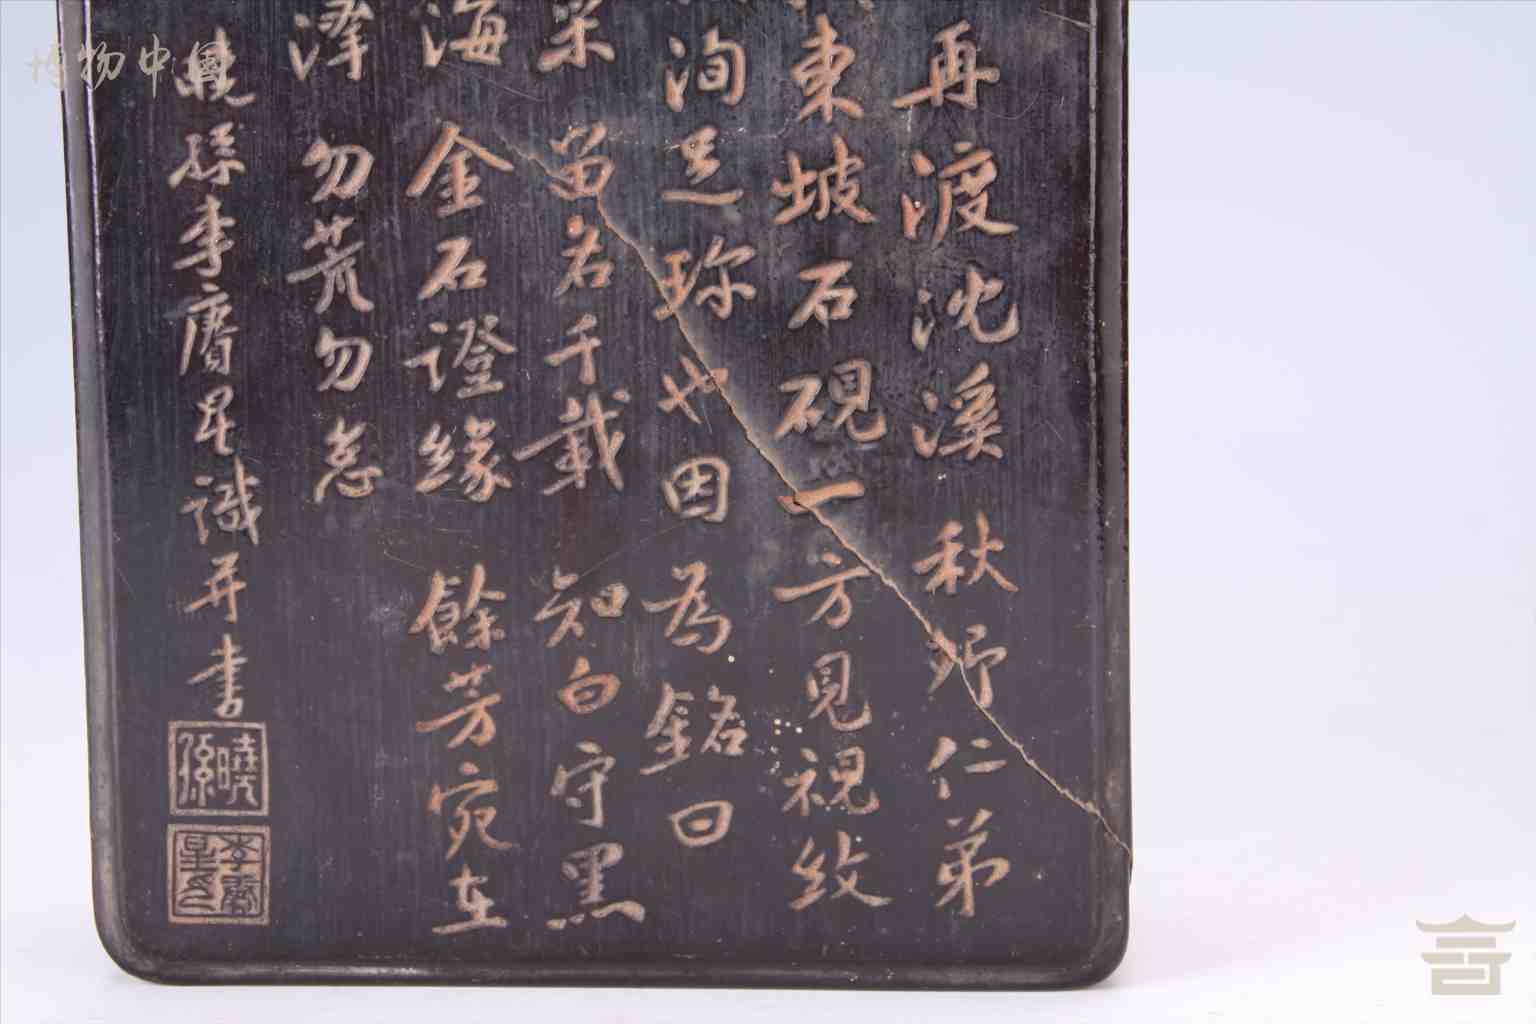 再渡沈溪 秋舫仁弟
東坡石硯一方見視紋
洵足珍也因為銘曰
留名千載 知白守黑
海 金石證緣 餘芳宛在
澤 勿荒勿怠
曉孫李賡星識并書
曉孫
李賡星印
博物中国